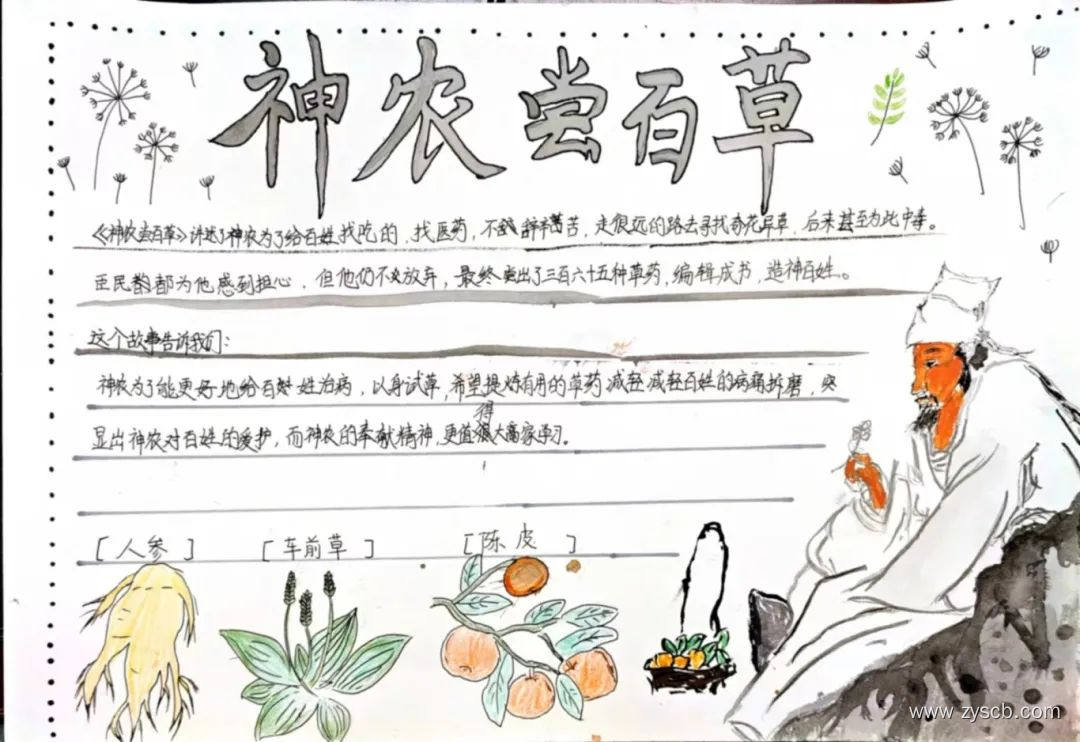 神农尝百草
《神农尝百草》讲述了神农为了给百姓找吃的，找医药，不畏辞辛苦，走很远的路去寻找奇花异草，后来甚至为此中毒。
臣民都为他感到担心，但他仍不放弃，最终尝出了三百六十五种草药，编辑成书，造神百姓。
这个故事告诉我们：
神农为了能更好地给百姓治病，以身试草，希望提炼有用的草药减轻减轻百姓的病痛折磨，突
得
显出神农对百姓的爱护，而神农的奉献精神，更值大家学习。
[人参] [车前草] [陈皮]
www.zyscb.com